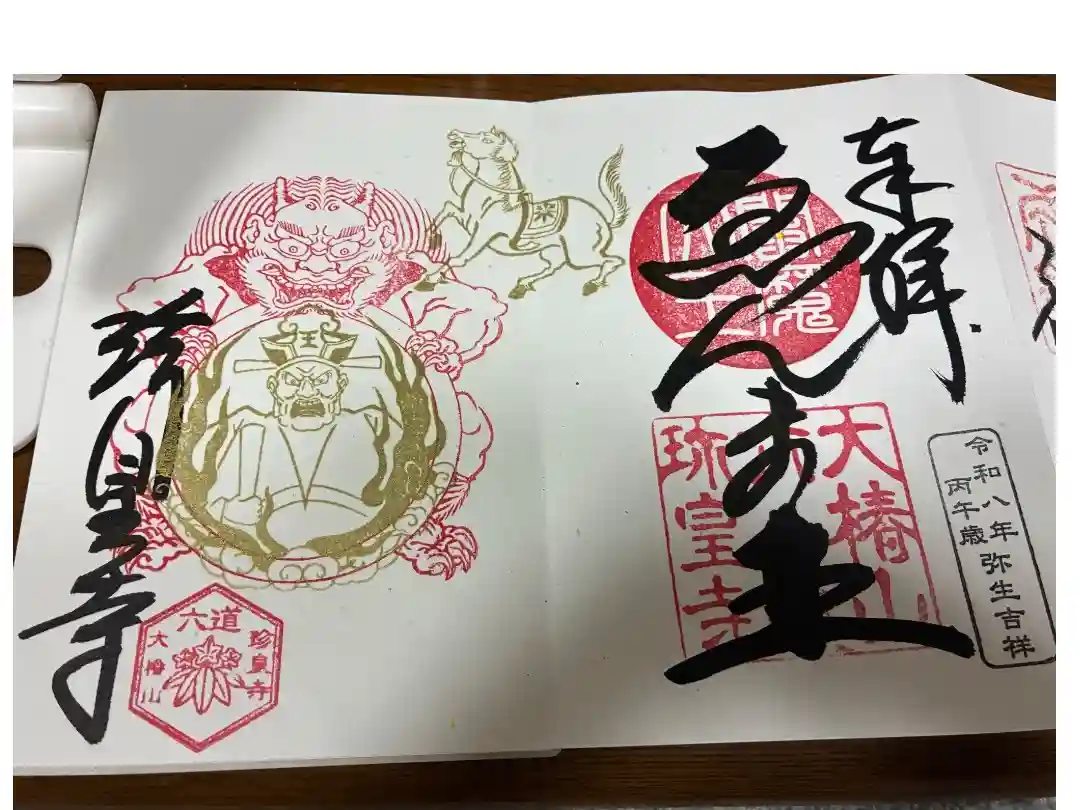 奉拝
令和八年弥生吉祥
丙午歳
ゑんま王
閻魔
大椿山
珎皇寺
王
珍皇寺
六道
珍皇寺
大椿山